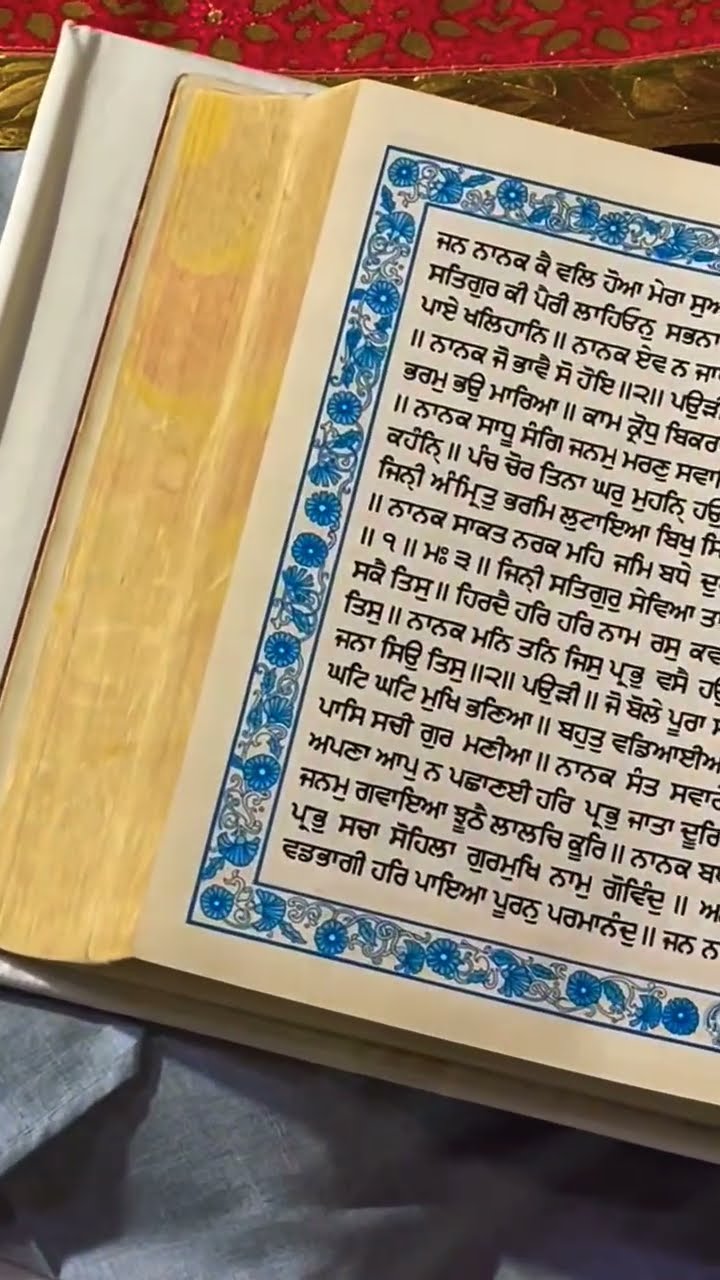 ਜਨ ਨਾਨਕ ਕੈ ਵਲਿ ਹੋਆ ਮੇਰਾ
ਸਤਿਗੁਰ ਕੀ ਪੈਰੀ ਲਾਹਿਓਨੁ ਸਭਨਾ
ਪਾਏ ਖਲਿਹਾਨਿ ॥ ਨਾਨਕ ਏਵ ਨ
॥ ਨਾਨਕ ਜੋ ਭਾਵੈ ਸੋ ਹੋਇ ॥੨॥ ਪਉੜੀ
ਭਰਮੁ ਭਉ ਮਾਰਿਆ ॥ ਕਾਮ ਕ੍ਰੋਧੁ
॥ ਨਾਨਕ ਸਾਧੂ ਸੰਗਿ ਜਨਮੁ ਮਰਣੁ
ਕਹੰਨਿੑ ॥ ਪੰਚ ਚੋਰ ਤਿਨਾ ਘਰੁ ਮੁਹਨਿੑ
ਜਿਨੀੑ ਅੰਮ੍ਰਿਤੁ ਭਰਮਿ ਲੁਟਾਇਆ ਬਿਖੁ
॥ ਨਾਨਕ ਸਾਕਤ ਨਰਕ ਮਹਿ ਜਮਿ ਬਧੇ
॥ ੧ ॥ ਮਃ ੩ ॥ ਜਿਨੀੑ ਸਤਿਗੁਰੁ ਸੇਵਿਆ
ਸਕੈ ਤਿਸੁ ॥ ਹਿਰਦੈ ਹਰਿ ਹਰਿ ਨਾਮ ਰਸੁ
ਤਿਸੁ ॥ ਨਾਨਕ ਮਨਿ ਤਨਿ ਜਿਸੁ ਪ੍ਰਭੁ ਵਸੈ
ਜਨਾ ਸਿਉ ਤਿਸੁ ॥੨॥ ਪਉੜੀ ॥ ਜੋ ਬੋਲੇ ਪੂਰਾ
ਘਟਿ ਘਟਿ ਮੁਖਿ ਭਣਿਆ ॥ ਬਹੁਤੁ
ਪਾਸਿ ਸਚੀ ਗੁਰ ਮਣੀਆ ॥ ਨਾਨਕ ਸੰਤ
ਅਪਣਾ ਆਪੁ ਨ ਪਛਾਣਈ ਹਰਿ ਪ੍ਰਭੁ ਜਾਤਾ ਦੂਰਿ
ਜਨਮੁ ਗਵਾਇਆ ਝੂਠੈ ਲਾਲਚਿ ਕੂਰਿ ॥ ਨਾਨਕ
ਪ੍ਰਭੁ ਸਚਾ ਸੋਹਿਲਾ ਗੁਰਮੁਖਿ ਨਾਮੁ ਗੋਵਿੰਦੁ ॥
ਵਡਭਾਗੀ ਹਰਿ ਪਾਇਆ ਪੂਰਨੁ ਪਰਮਾਨੰਦੁ ॥ ਜਨ